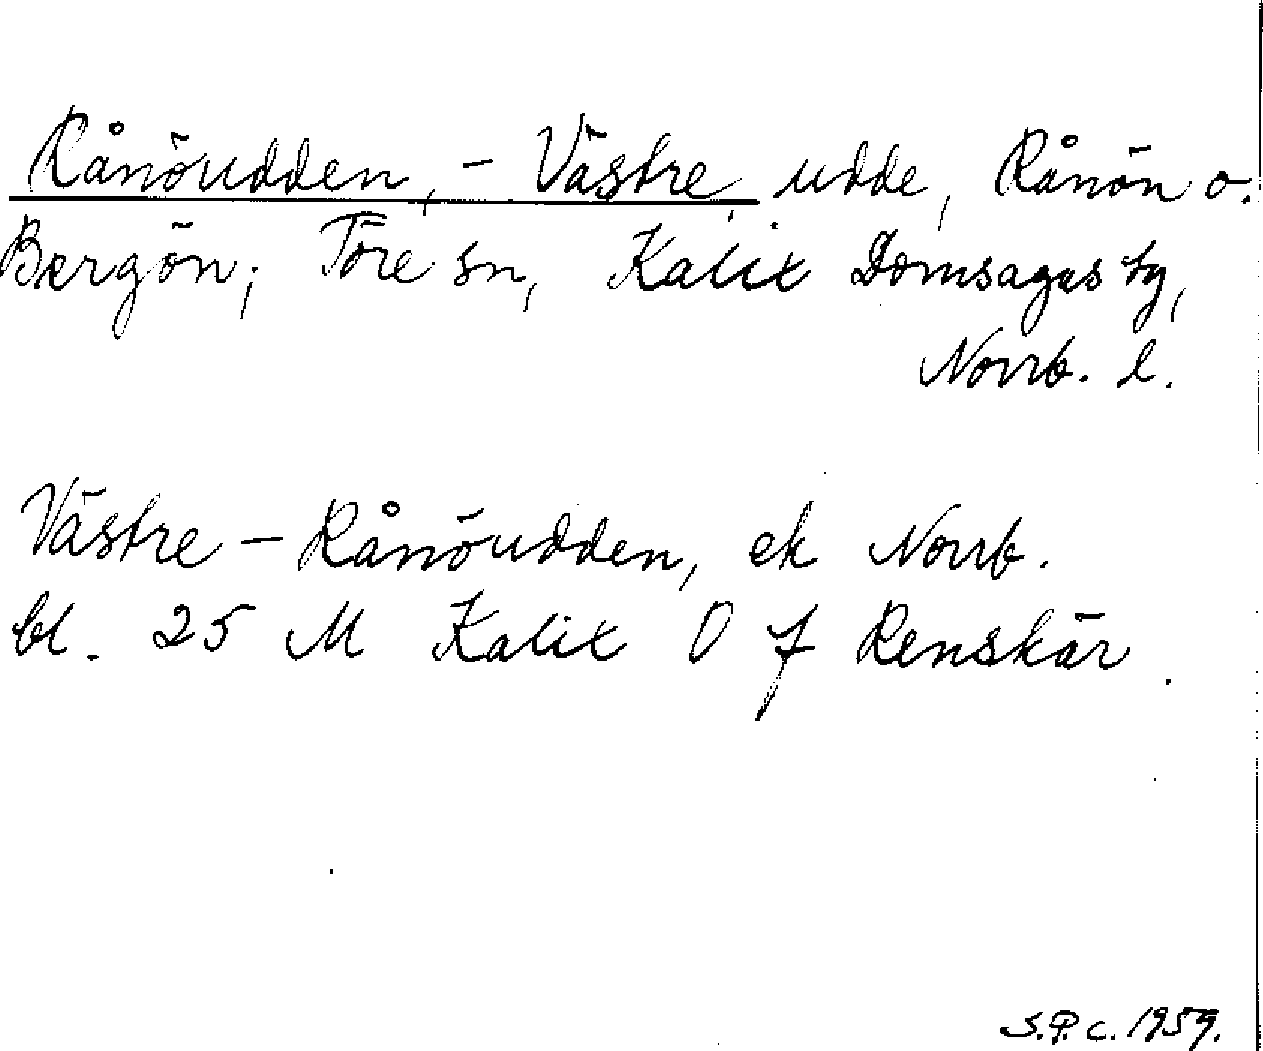 Rånöudden, - Västre, udde, Rånön o.
Bergön; Töre sn, Kalix Domsagas tg,
Norrb. l.
Västre - Rånöudden, ek Norrb.
bl. 25 M Kalix O f Renskär.
S.P. c. 1959.